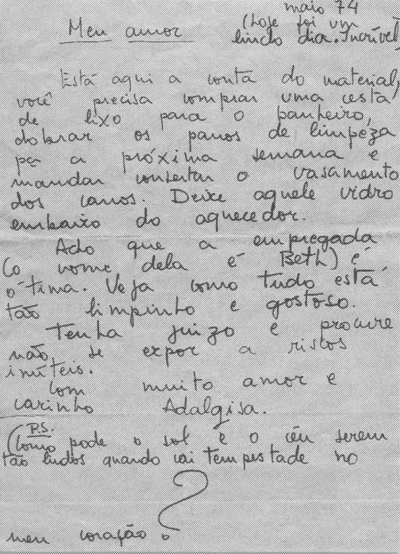 maio 74
Meu amor
(Hoje foi um
lindo dia. Incrível)
Está aqui a conta do material,
você precisa comprar uma cesta
de lixo para o banheiro,
dobrar os panos de limpeza
pra a próxima semana e
mandar consertar o vasamento
dos canos. Deixe aquele vidro
embaixo do aquecedor.
Acho que a empregada
(o nome dela é Beth) é
ótima. Veja como tudo está
tão limpinho e gostoso.
Tenha juizo e procure
não se expor a riscos
inúteis.
Com muito amor e
carinho Adalgisa.
P.S.
(Como pode o sol e o céu serem
tão lindos quando vai tempestade no
meu coração?